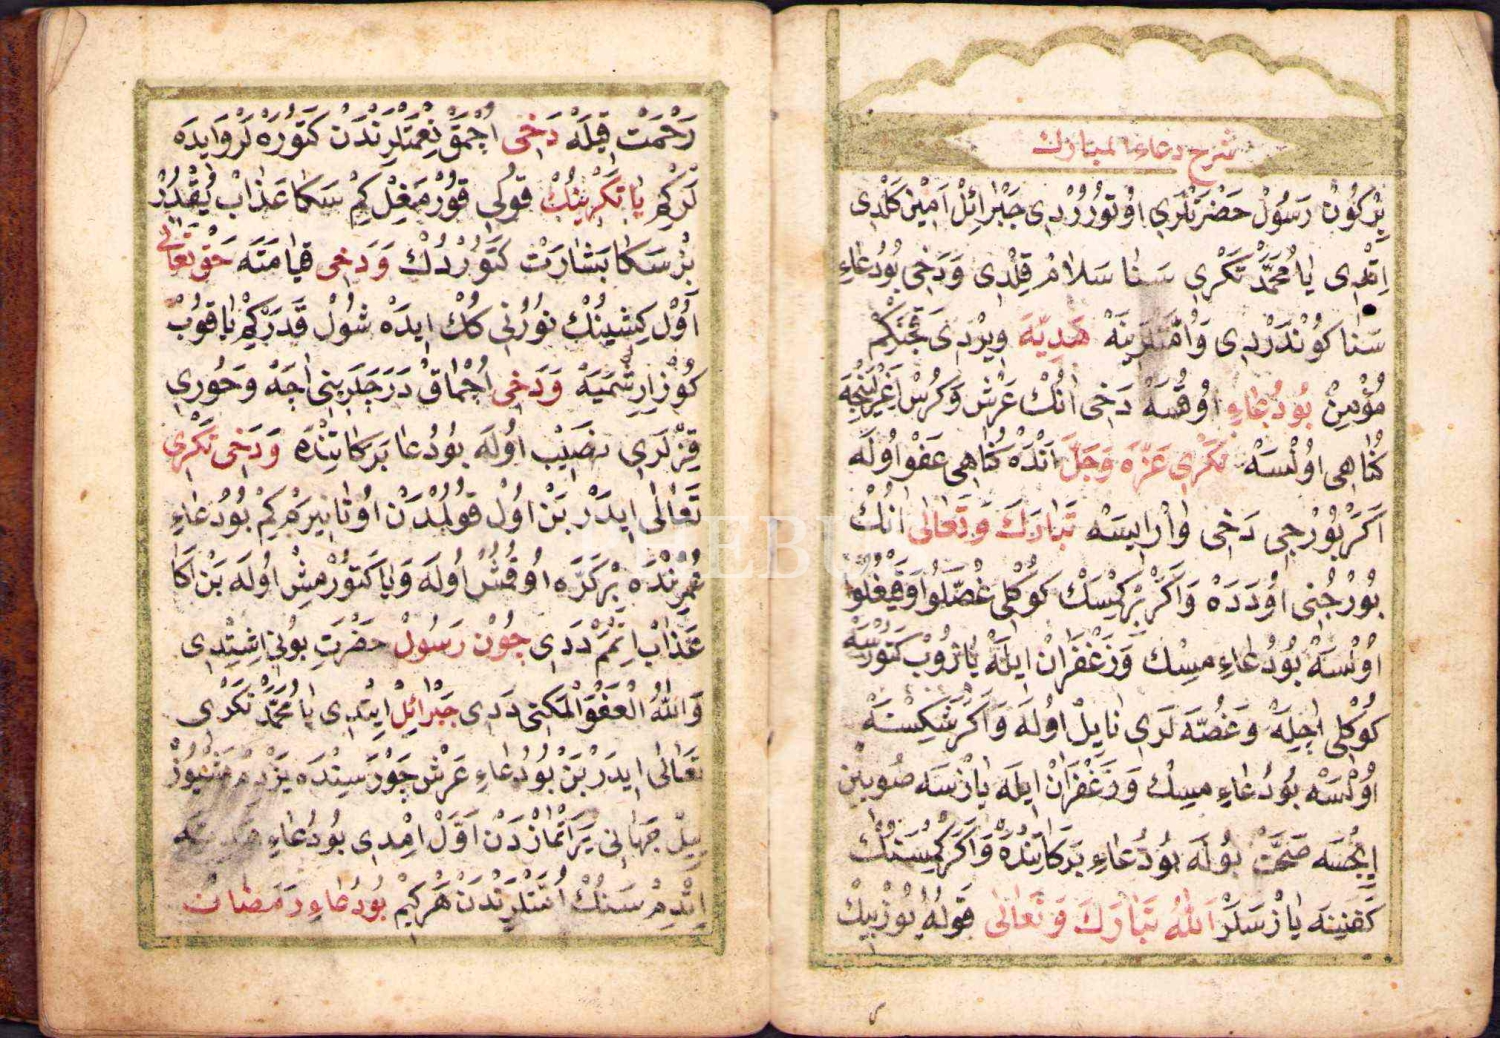 شرح دعاء المبارك
بِرْ كُونْ رَسُولْ حَضْرَتْلَرِي اوُتُورُرْدِي جَبْرَائِلْ اَمِينْ كَلْدِى
اِتْدِى يَا مُحَمَّدْ تَكْرِي سَنَا سَلَامْ قِلْدِى وَدَخِى بُودُعَاءِ
سَنَا كُونْدَرْدِى وَاُمَّتْلَرِينَهْ هَدِيَّهَ وِيرْدِى
مُؤْمِنْ بُودُعَاءِ اوُقُسَهْ دَخِى اَنُكْ عَرْشْ وَكُرْسْ
كُنَاهِى اوُلْسَهْ تَكْرِى عَزَّهَ وَجَلَّ اَنْدَهْ كُنَاهِى عَفْو اوُلَهْ
اَكَرْ بُورْجِى دَخِى وَارْاِيسَهْ تَبَارَكَ وَتَعَالَى اَنُكْ
بُورْجُنِى اوُدَدَهْ وَاَكَرْ بِرْكِيسَكْ كُوكْلِى غُصَّلُو
اوُلْسَهْ بُودُعَاءِ مِسِكْ وَزَغْفَرَانْ اِيلَهْ يَازُوبْ كَتُورْسَهْ
كُوكْلِى اَجِلَهْ وَغُصَّهَ لَرِى نَايِلْ اوُلَهْ وَاَكَرْ شَكِسْتَهْ
اوُلْسَهْ بُودُعَاءِ مِسِكْ وَزَغْفَرَانْ اِيلَهْ يَازْسَهْ صُويِنْ
اِيجْسَهْ صِحَّتْ بُولَهْ بُودُعَاءِ بَرَكَاتِنْدَهْ وَاَكَرْ كِمْسَنَكْ
كَفَنِينَهْ يَازْسَلَرْ اَللّٰهُ تَبَارَكَ وَتَعَالَى قَولَهْ يُوزْبِيكْ
رَحْمَتْ قِلَهْ دَخِى اُجْمَقْ نِعْمَتْلَرِنْدَنْ كَتُورَهْ لَرْ وَايِدَهْ
لَرْكِمْ يَا تَكْرِينِكْ قُولِى قُورْمَغِلْ كِمْ سَكَا عَذَابْ يُقْدُرْ
بُزْ سَكَا بَشَارَتْ كَتُورْدُكْ وَدَخِى قِيَامَتَهْ حَقْ تَعَالَى
اَوُلْ كِشِينُكْ نُورُنِى كُكْ اِيدَهْ شُولْ قَدَرْكِمْ بَاقُوبْ
كُوزْلَرِ قَمَشَهْ وَدَخِى اُجْمَاقْ دَرَجَلَرِينِى اَجَهْ وَحُورِى
قِزْلَرِى نَصِيبْ اوُلَهْ بُودُعَا بَرَكَاتِنْدَهْ وَدَخِى تَكْرِى
تَعَالَى اِيدَرْ بَنْ اوُلْ قُولُمْدَنْ اوُتَانِيرَمْ كِمْ بُودُعَاءِ
عُمْرِنْدَهْ بِرْكَرَهْ اوُقُمُشْ اوُلَهْ وَيَا كَتُورْمِشْ اوُلَهْ بَنْ اَكَا
عَذَابْ اِتْمَمْ دَدِى چُونْ رَسُولْ حَضْرَتِ بُونِ اِشِتْدِى
وَاللّٰهُ دَدِى جَبْرَائِلْ اِيتْدِى يَا مُحَمَّدْ تَكْرِى
تَعَالَى اِيدَرْ بَنْ بُودُعَاءِ عَرْشْ چَوْرَسِينْدَهْ يَزْدِمْ
بِيلْ جَهَانِى يَرَاتْمَازْدَنْ اَوَّلْ اِمْدِى بُودُعَاءِ
اِتْدِمْ سَنُكْ اُمَّتْلَرِنْدَنْ هَرْكِيمْ بُودُعَاءِ رَمَضَانْ
PHEBUS